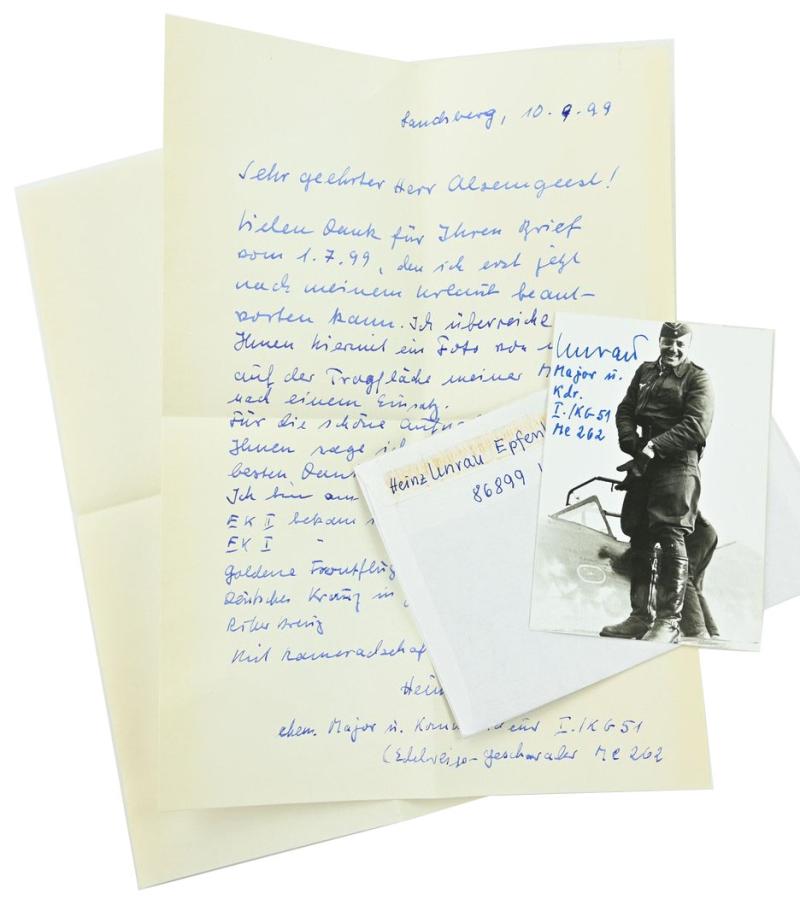 Landsberg, 10.9.99
Sehr geehrter Herr Alsemgeest!
Vielen Dank für Ihren Brief
vom 1.7.99, den ich erst jetzt
nach meinem Urlaub beant-
worten kann. Ich überreiche
Ihnen hiermit ein Foto von
auf der Tragfläche meiner
nach einem Einsatz.
Für die schöne
Ihnen sage ich
besten Dank
Ich bin am
EK II bekam
EK I "
goldene Frontflug
Deutsches Kreuz in
Ritterkreuz
Mit kameradschaf
Hein
ehem. Major u. Kom eur I./KG 51
(Edelweiss-geschwader Me 262
Heinz Unrau Epfen
86899
Unrau
Major u.
Kdr.
I./KG 51
Me 262